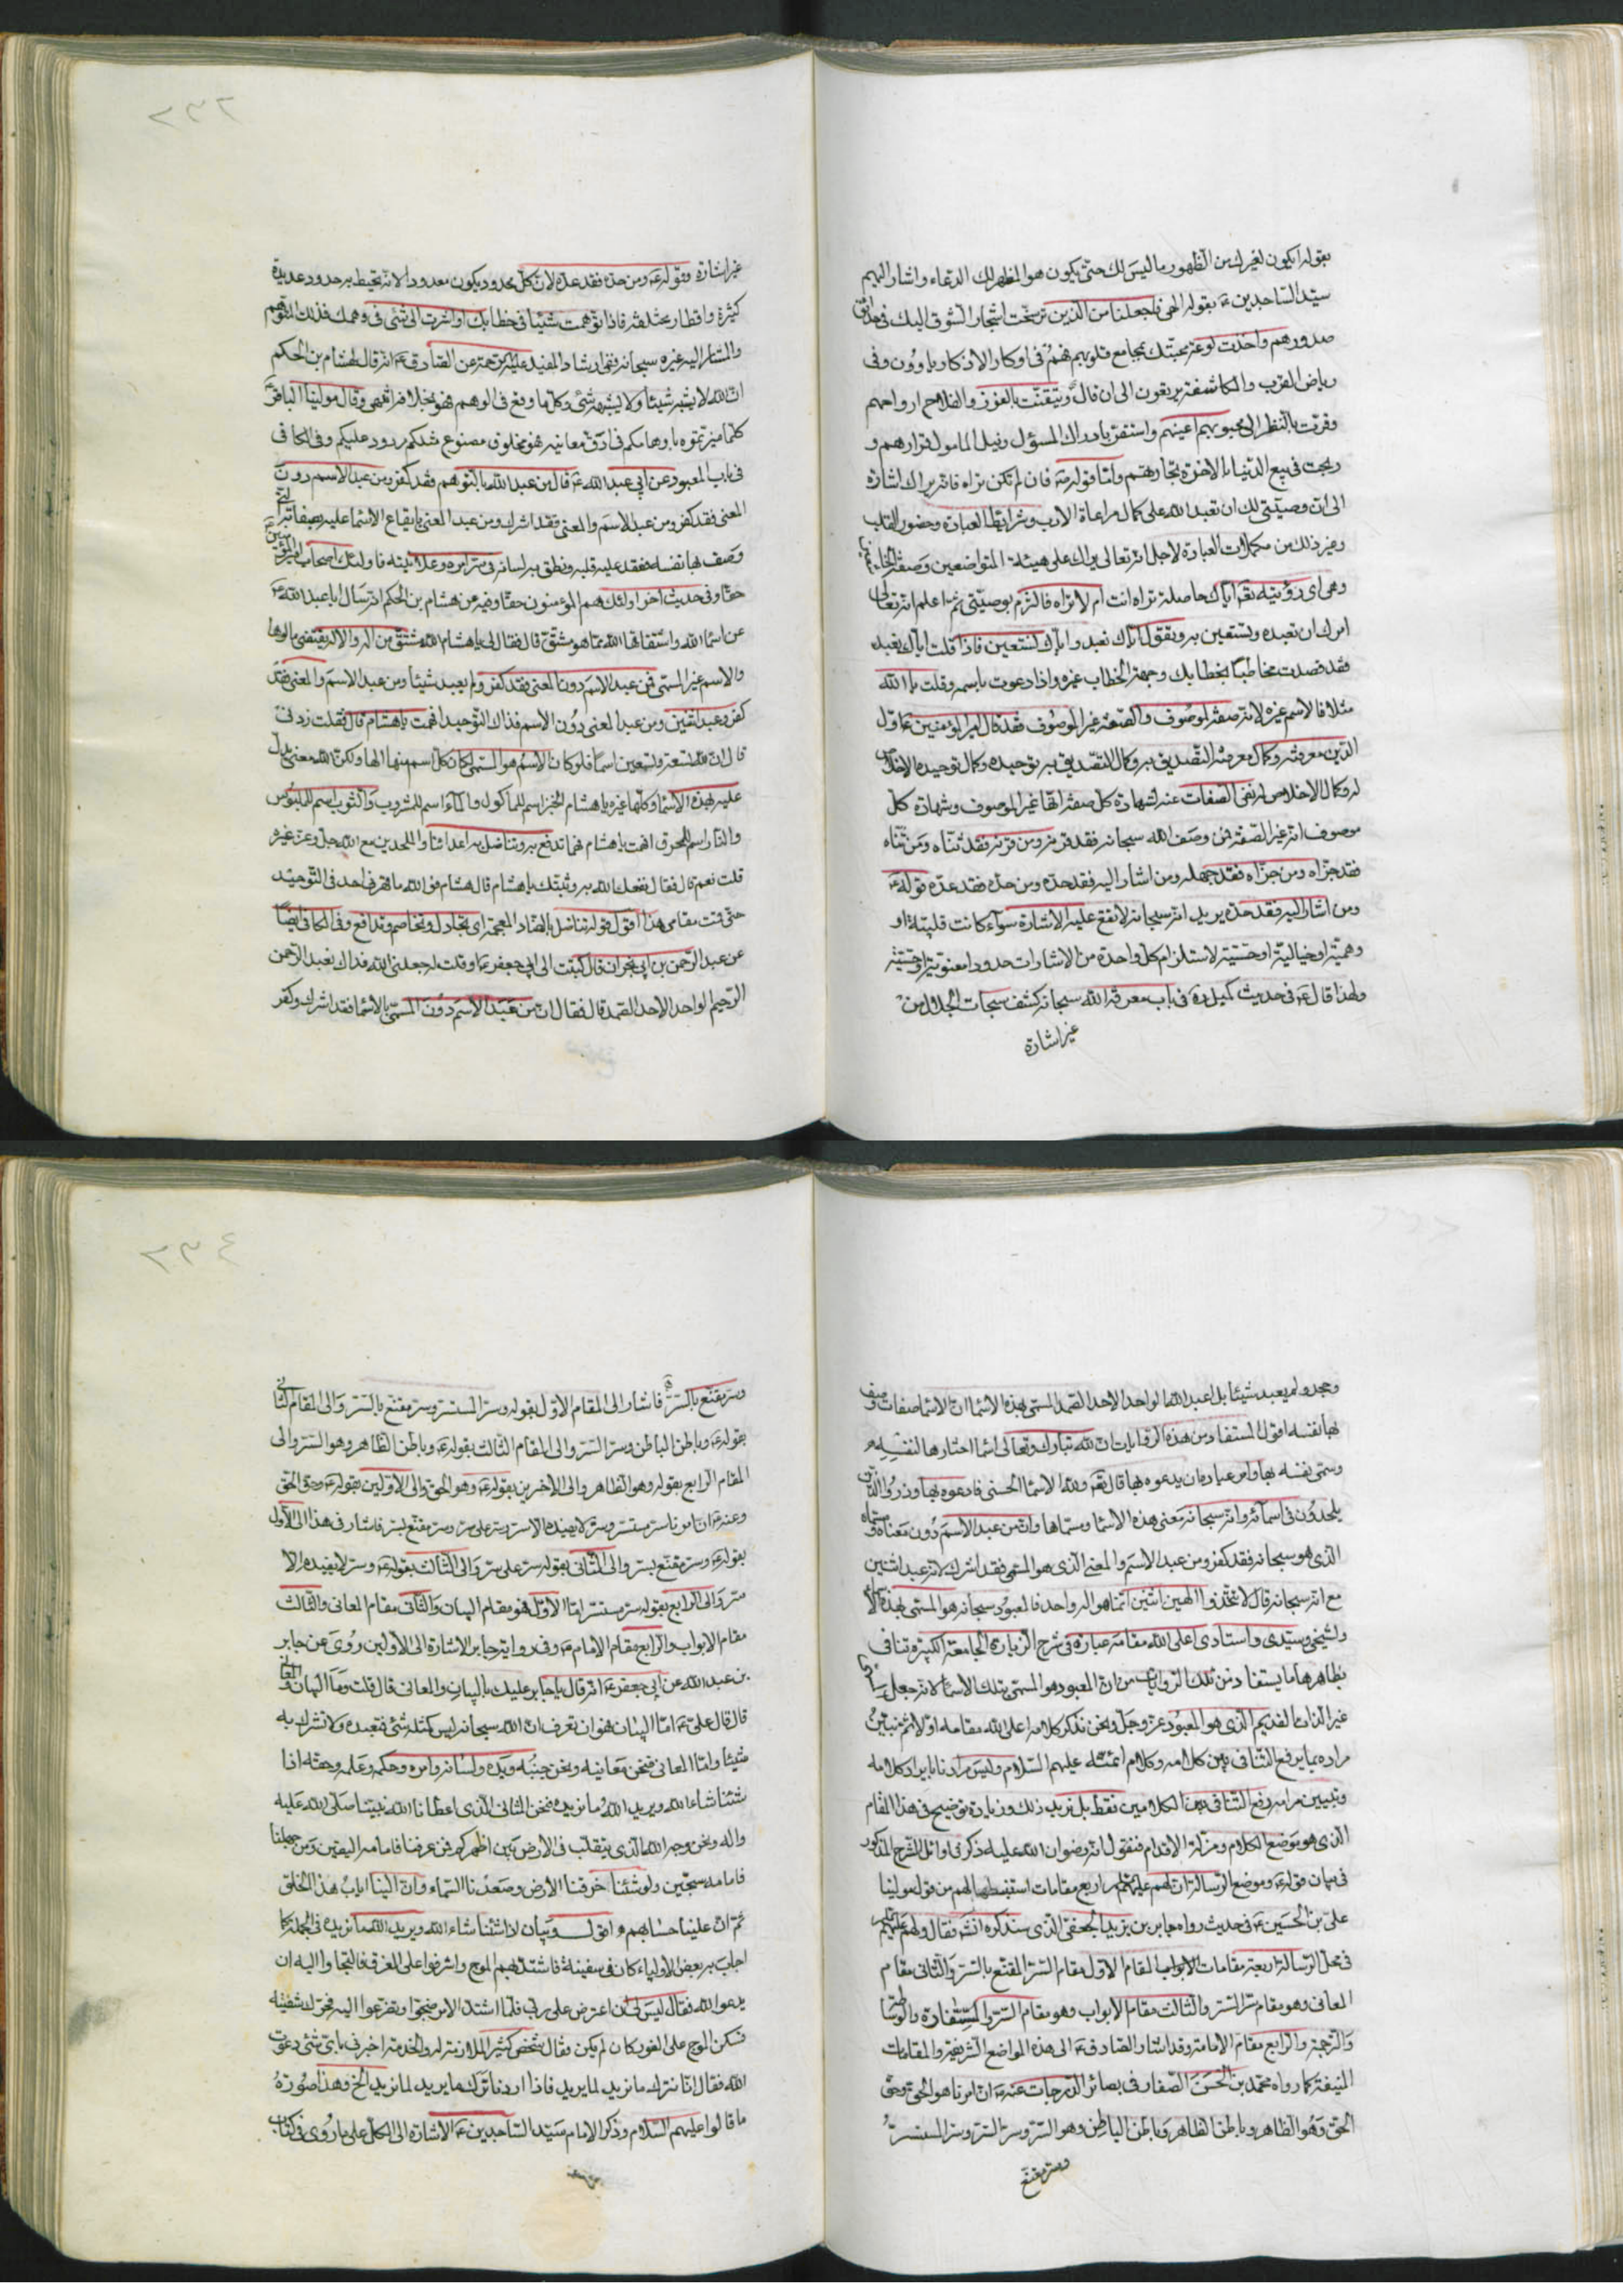 بقوله ايكون لغيرك من الظهور ما ليس لك حتى يكون هو المظهر لك الدعاء واشار اليهم
سيّد الساجدين ع بقوله الهي فاجعلنا من الذين ترسّخت اشجار الشوق اليك في حدائق
صدورهم واخذت لوعة محبّتك بمجامع قلوبهم فهم في اوكار الافكار ياوون وفي
رياض القرب والمكاشفة يرتعون الى ان قال وتيقّنت بالفوز والفلاح ارواحهم
وقرّت بالنظر الى محبوبهم اعينهم واستقرّ بادراك المسؤل ونيل المامول قرارهم و
ربحت في بيع الدنيا بالاخرة تجارتهم وامّا قوله فان لم تكن تراه فانه يراك اشارة
الى انّ وصيّتي لك ان تعبد الله على كمال مراعاة الادب وشرائط العبادة وحضور القلب
وغير ذلك من مكملات العبادة لاجل انه تعالى يراك على هيئة المتواضعين وصفة
وهي اي رؤيته تع اياك حاصلة تراه انت ام لا تراه فالتزم بوصيّتي ثم اعلم انه تعالى
امرك ان تعبده وتستعين به وتقول اياك نعبد واياك نستعين فاذا قلت اياك نعبد
فقد قصدت مخاطبا بخطابك وجهة الخطاب غيره واذا دعوت باسمه وقلت يا الله
مثلا فالاسم غيره لانه صفة لموصوف والصفة غير الموصوف فقد قال امير المؤمنين ع اوّل
الدين معرفته وكمال معرفته التصديق به وكمال التصديق به توحيده وكمال توحيده الاخلاص
له وكمال الاخلاص له نفى الصفات عنه لشهادة كلّ صفة انها غير الموصوف وشهادة كلّ
موصوف انه غير الصفة فمن وصف الله سبحانه فقد قرنه ومن قرنه فقد ثنّاه ومن ثنّاه
فقد جزّاه ومن جزّاه فقد جهله ومن اشار اليه فقد حدّه ومن حدّه فقد عدّه قوله ع
ومن اشار اليه فقد حدّه يريد انه سبحانه لا تقع عليه الاشارة سواء كانت قلبيّة او
وهميّة او خيالية او حسّيّة لاستلزام كلّ واحدة من الاشارات حدودا معنويّة او حسّيّة
ولهذا قال ع في حديث كميل في باب معرفة الله سبحانه كشف سبحات الجلال من
غير اشارة
٢٣٢
غير اشارة وقوله ع ومن حدّه فقد عدّه لان كلّ محدود يكون معدودا لانه تحيط به حدود عديدة
كثيرة واقطار مختلفة فاذا توهمت شيئا في خطابك او اشرت الى شئ في وهمك فذلك المتوهم
والمشار اليه غيره سبحانه ففي ارشاد المفيد عليه الرحمة عن الصادق ع انه قال لهشام بن الحكم
ان الله لا يشبه شيئا ولا يشبهه شئ وكلّ ما وقع في الوهم فهو بخلافه انتهى وقال مولينا الباقر ع
كلّما ميزتموه باوهامكم في ادقّ معانيه فهو مخلوق مصنوع مثلكم مردود عليكم وفي الكافي
في باب المعبود عن ابي عبد الله ع قال من عبد الله بالتوهم فقد كفر ومن عبد الاسم دون
المعنى فقد كفر ومن عبد الاسم والمعنى فقد اشرك ومن عبد المعنى بايقاع الاسما عليه بصفاته التي
وصف بها نفسه فعقد عليه قلبه ونطق به لسانه في سرائره وعلانيته فاولئك اصحاب امير المؤمنين
حقا وفي حديث اخر اولئك هم المؤمنون حقا وفيه عن هشام بن الحكم انه سال ابا عبد الله ع
عن اسما الله واشتقاقها الله ممّا هو مشتقّ قال فقال لي يا هشام الله مشتقّ من اله والاله يقتضي مالوها
والاسم غير المسمى فمن عبد الاسم دون المعنى فقد كفر ولم يعبد شيئا ومن عبد الاسم والمعنى فقد
كفر وعبد اثنين ومن عبد المعنى دون الاسم فذاك التوحيد افهمت يا هشام قال فقلت زدني
قال ان لله تسعة وتسعين اسما فلو كان الاسم هو المسمى لكان كلّ اسم منها الها ولكنّ الله معنى يدلّ
عليه بهذه الاسما وكلّها غيره يا هشام الخبز اسم للماكول والماء اسم للمشروب والثوب اسم للملبوس
والنار اسم للمحرق افهمت يا هشام فهما تدفع به وتناضل به اعدائنا والملحدين مع الله جل وعز غيره
قلت نعم قال فقال نفعك الله به وثبّتك يا هشام قال هشام فو الله ما قهرني احد في التوحيد
حتى قمت مقامي هذا اقول قوله تناضل بالضاد المعجمة اي تجادل وتخاصم وتدافع وفي الكافي ايضا
عن عبد الرحمن بن ابي نجران قال كتبت الى ابي جعفر ع او قلت له جعلني الله فداك نعبد الرحمن
الرحيم الواحد الاحد الصمد قال فقال ان من عبد الاسم دون المسمى بالاسما فقد اشرك وكفر
وجحد ولم يعبد شيئا بل اعبد الله الواحد الاحد الصمد المسمى بهذه الاسما ان الاسما صفات وصف
بها نفسه اقول المستفاد من هذه الروايات ان الله تبارك وتعالى اسما اختارها لنفسه
وسمى نفسه بها وامر عباده ان يدعوه بها قال تع ولله الاسما الحسنى فادعوه بها وذروا الذين
يلحدون في اسمائه وانه سبحانه معنى هذه الاسما ومسماها وان من عبد الاسم دون معناه ومسماه
الذي هو سبحانه فقد كفر ومن عبد الاسم والمعنى الذي هو المسمى فقد اشرك لانه عبد اثنين
مع انه سبحانه قال لا تتخذوا الهين اثنين انما هو اله واحد فالمعبود سبحانه هو المسمى بهذه الاسماء
ولشيخي وسيّدي واستادي اعلى الله مقامه عبارة في شرح الزيارة الجامعة الكبيرة تنافي
بظاهرها ما يستفاد من تلك الروايات من ان المعبود هو المسمى بتلك الاسما لانه جعل
غير الذات القديم الذي هو المعبود عز وجل ونحن نذكر كلامه اعلى الله مقامه اولا ثم نبيّن
مراده بما يرفع التنافي بين كلامه وكلام ائمته عليهم السلام وليس مرادنا بايراد كلامه
وتبيين مرامه رفع التنافي بين الكلامين فقط بل نريد ذلك وزيادة توضيح في هذا المقام
الذي هو موضع الكلام ومزلة الاقدام فنقول انه رضوان الله عليه ذكر في اوائل الشرح المذكور
في بيان قوله ع وموضع الرسالة ان لهم عليهم السلام اربع مقامات استنبطها لهم من قول مولينا
علي بن الحسين ع في حديث رواه جابر بن يزيد الجعفي الذي سنذكره انشاء فقال ولهم عليهم السلام
في محل الرسالة اربعة مقامات الابواب المقام الاول مقام السر المقنع بالسر والثاني مقام
المعاني وهو مقام سر السر والثالث مقام الابواب وهو مقام السر والسفارة والوساطة
والترجمة والرابع مقام الامامة وقد اشار الصادق ع الى هذه المواضع الشريفة والمقامات
المنيفة كما رواه محمد بن الحسن الصفار في بصائر الدرجات عنه ع ان امرنا هو الحق وحق
الحق وهو الظاهر وباطن الظاهر وباطن الباطن وهو السر وسر السر وسر المستسر
وسر مقنع
٢٣٤
وسر مقنع بالسر فاشار الى المقام الاول بقوله وسر المستسر وسر مقنع بالسر والى المقام الثاني
بقوله ع وباطن الباطن وسر السر والى المقام الثالث بقوله ع وباطن الظاهر وهو السر والى
المقام الرابع بقوله وهو الظاهر والى الاخرين بقوله ع وهو الحق والى الاولين بقوله ع وحق الحق
وعنه ع ان امرنا سر مستسر وسر لا يفيده الا سر وسر على سر وسر مقنع بسر فاشار في هذا الى الاول
بقوله ع وسر مقنع بسر والى الثاني بقوله سر على سر والى الثالث بقوله ع وسر لا يفيده الا
سر والى الرابع بقوله سر مستسر امّا الاول فهو مقام البيان والثاني مقام المعاني والثالث
مقام الابواب والرابع مقام الامام ع وفي رواية جابر الاشارة الى الاولين روى عن جابر
بن عبد الله عن ابي جعفر ع انه قال يا جابر عليك بالبيان والمعاني قال قلت وما البيان والمعاني
قال قال علي ع امّا البيان فهو ان تعرف ان الله سبحانه ليس كمثله شئ فتعبده ولا تشرك به
شيئا وامّا المعاني فنحن معانيه ونحن جنبه ويده ولسانه وامره وحكمه وعلمه وحقه اذا
شئنا شاء الله ويريد الله ما نريده فنحن المثاني الذي اعطانا الله نبيّنا صلى الله عليه
واله ونحن وجه الله الذي يتقلب في الارض بين اظهركم فمن عرفنا فامامه اليقين ومن جهلنا
فامامه سجّين ولو شئنا خرقنا الارض وصعدنا السماء وان الينا اياب هذا الخلق
ثم ان علينا حسابهم اقول وبيان اذا شئنا شاء الله ويريد الله ما نريده في الجملة ما
اجاب به بعض الاولياء كان في سفينة فاشتدّ بهم الموج واشرفوا على الغرق فالتجاوا اليه ان
يدعو الله فقال ليس لي ان اعترض على ربي فلما اشتد الامر ضجّوا وتضرّعوا اليه فحرّك شفتيه
فسكن الموج على الفور كان لم يكن فقال شخص كثير الملازمة له والخدمة اخبرني باي شئ دعوت
الله فقال انا نترك ما نريد لما يريد فاذا اردنا ترك ما يريد لما نريد الخ وهذا صورة
ما قالوا عليهم السلام وذكر الامام سيّد الساجدين ع الاشارة الى الكل على ما روي في كتاب